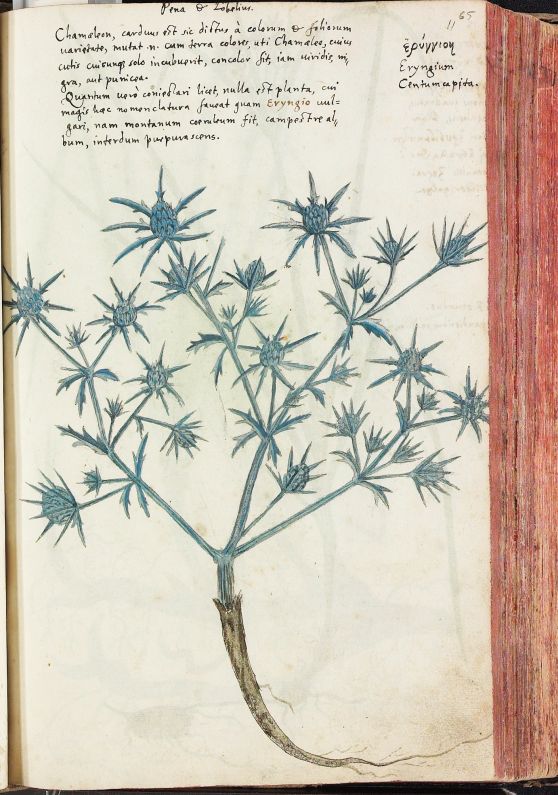 Pena & Lobelius.
Chamæleon, carduus est sic dictus à colorum & foliorum
varietate, mutat n. cum terra colores, uti Chamæleo, cuius
cutis cuicunque solo incubuerit, concolor fit, iam viridis, ni,
gra, aut punicea.
Quantum verò conjectari licet, nulla est planta, cui
magis hæc nomenclatura faveat quam Eryngio vul=
gari, nam montanum cœruleum fit, campestre al,
bum, interdum purpurascens.
65
11
ἐρύγγιον
Eryngium
Centumcapita.